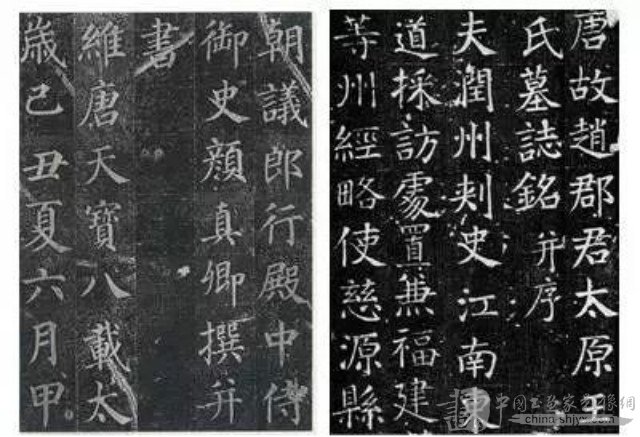 朝議郎行殿中侍
御史顔真卿撰并
書
維唐天寶八載太
歳己丑夏六月甲
唐故趙郡君太原王
氏墓誌銘并序
夫潤州刾史江南東
道採訪處置兼福建
等州經略使慈源縣
china-shjyx.com